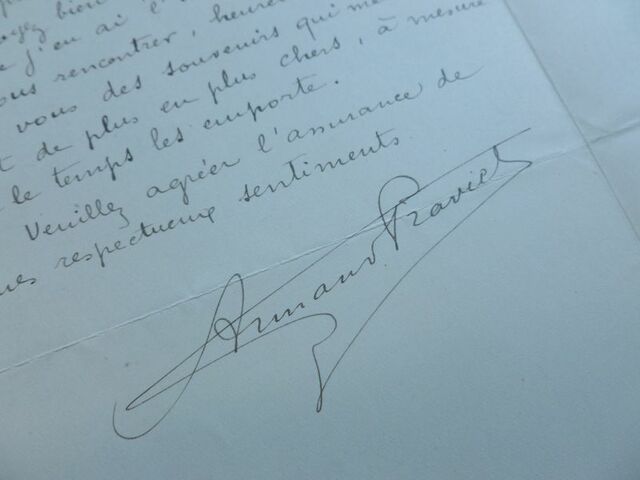 oyez bien
j'en ai l'
rencontrer, heureu
vous des souvenirs qui me
de plus en plus chers, à mesure
le temps les emporte.
Veuillez agréer l'assurance de
mes respectueux sentiments
Armand Praviel